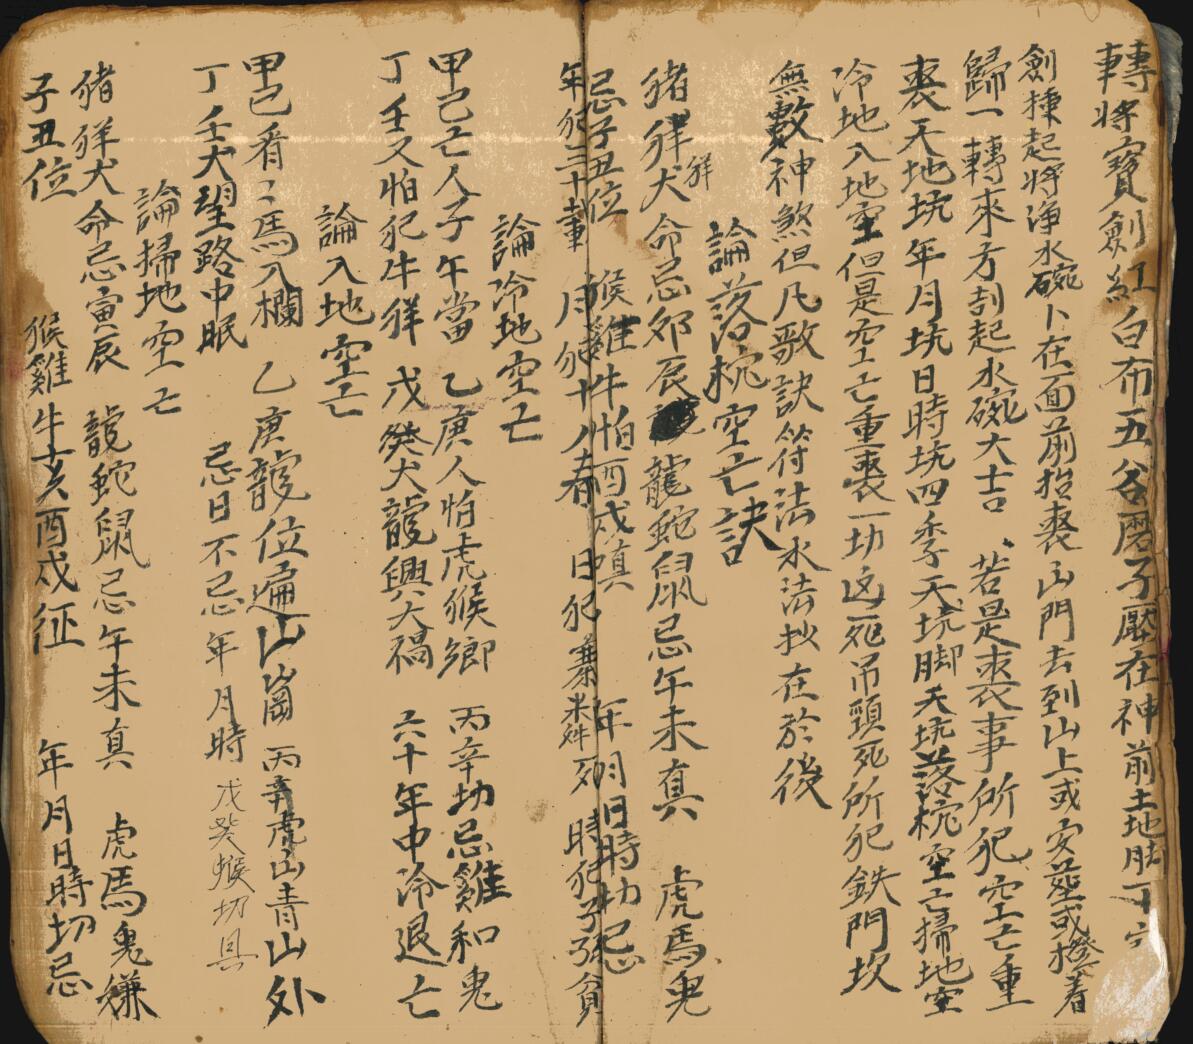 轉將寶劍紅白布五谷曆子壓在神前土地脚下
劍揀起將淨水碗卜在面前抬喪出門去到山上或安葬或擡着
歸一轉來方刮起水碗大吉 若是喪事所犯空亡重
喪天地坑年月坑日時坑四季天坑脚天坑落枕空亡掃地空
冷地入地空但是空亡重喪一切凶死吊頸死所犯鉄門坎
無數神煞但凡歌訣符法水法抄在於後
論落枕空亡訣
猪牂犬命忌卯辰 龍蛇鼠忌午未真 虎馬兎
牂
忌子丑位 猴雞牛怕酉戌嗔 年月日時切忌
年犯三十重 月犯十八春 日犯寡米 死 時犯子孫貧
論冷地空亡
甲己亡人子午當 乙庚人怕虎猴鄉 丙辛切忌雞和兎
丁壬又怕犯牛牂 戊癸犬龍興大禍 六十年中冷退亡
論入地空亡
甲己看看馬入欄 乙庚龍位遍山崗 丙辛虎山青山外
丁壬犬望路中眠 忌日不忌年月時 戊癸猴切具
論掃地空亡
猪牂犬命忌寅辰 龍蛇鼠忌午未真 虎馬兎嫌
子丑位 猴雞牛亥酉戌征 年月日時切忌